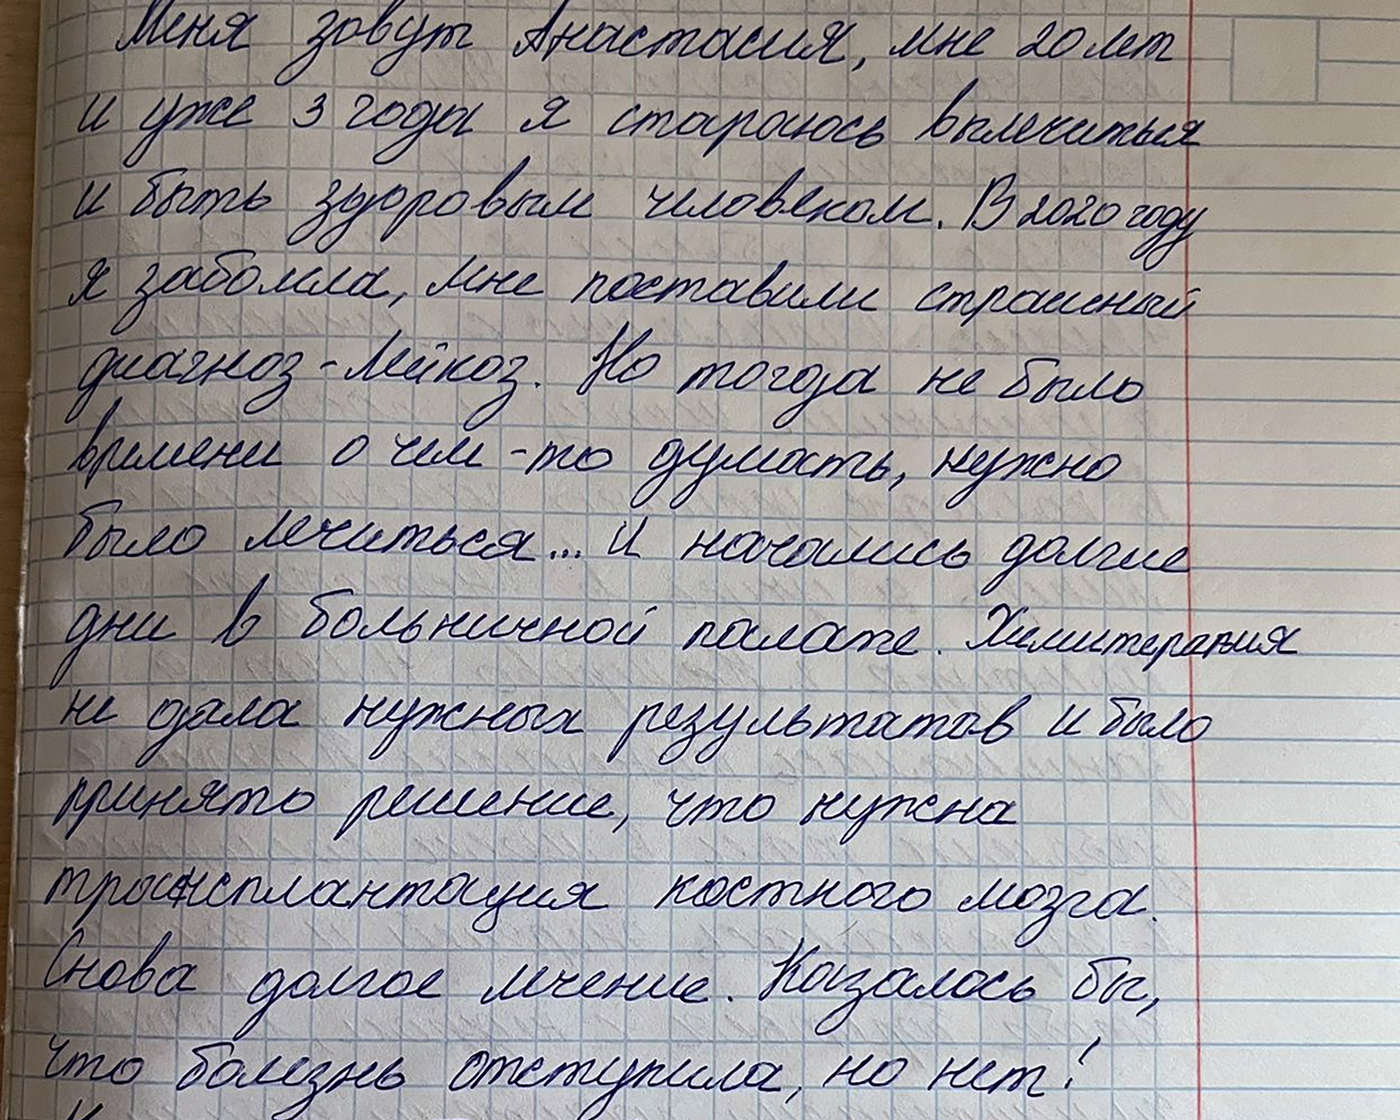 Меня зовут Анастасия, мне 20 лет
и уже 3 года я стараюсь вылечиться
и быть здоровым человеком. В 2020 году
я заболела, мне поставили страшный
диагноз - Лейкоз. Но тогда не было
времени о чем-то думать, нужно
было лечиться... И начались долгие
дни в больничной палате. Химитерапия
не дала нужных результатов и было
принято решение, что нужна
трансплантация костного мозга.
Снова долгое лечение. Казалось бы,
что болезнь отступила, но нет!